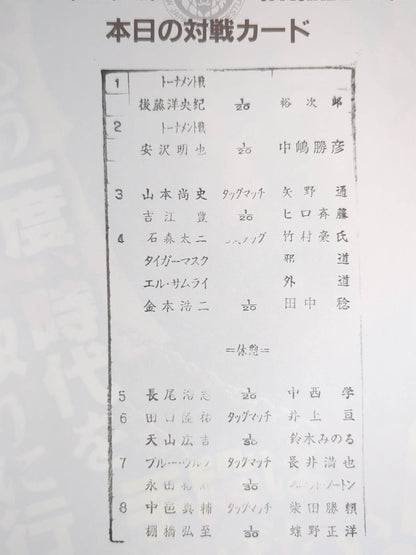 本日の対戦カード
1 トーナメント戦
後藤洋央紀 1/20 裕次郎
2 トーナメント戦
安沢明也 1/20 中嶋勝彦
3 山本尚史 タッグマッチ 矢野 通
吉江 豊 1/20 ヒロ斉藤
4 石森太二 竹村豪氏
タイガーマスク 邪 道
エル・サムライ 外 道
金本浩二 1/20 田中 稔
=休憩=
5 長尾浩志 1/20 中西 学
6 田口隆祐 タッグマッチ 井上 亘
天山広吉 1/30 鈴木みのる
7 ブルー・ウルフ タッグマッチ 長井満也
永田 1/30 ートン
8 中邑真輔 タッグマッチ 柴田勝頼
棚橋弘至 1/30 蝶野正洋